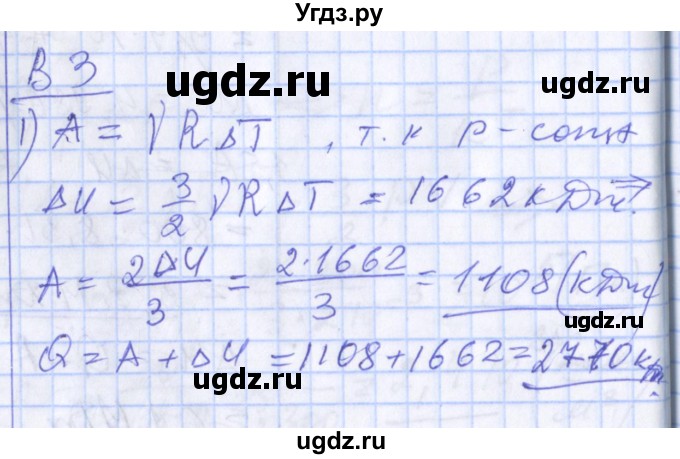 Угдз.ру
В 3
ugdz.ru ugdz.ru
1) A = νRΔT , т.к p - const
ΔU = 3/2 νRΔT = 1662 кДж ⇒
A = 2ΔU/3 = 2·1662/3 = 1108 (кДж)
ugdz.ru
Q = A + ΔU = 1108 + 1662 = 2770 кДж.
ugdz.ru ugdz.ru
ugdz.ru